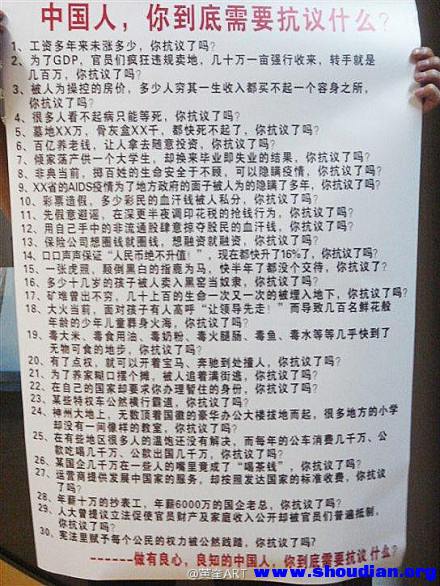 中国人，你到底需要抗议什么？
1、工资多年来未涨多少，你抗议了吗？
2、为了GDP，官员们疯狂违规卖地，几十万一亩强行收来，转手就是
几百万，你抗议了吗？
3、被人为操控的房价，多少人穷其一生收入都买不起一个容身之所，
你抗议了吗？
4、很多人看不起病只能等死，你抗议了吗？
5、墓地XX万，骨灰盒XX千，都快死不起了，你抗议了吗？
6、百亿养老钱，让人拿去随意投资，你抗议了吗？
7、倾家荡产供一个大学生，却换来毕业即失业的结果，你抗议了吗？
8、非典当前，掷百姓的生命安全于不顾，可以隐瞒疫情，你抗议了吗？
9、XX省的AIDS疫情为了地方政府的面子被人为的隐瞒了多年，你抗议了吗？
10、彩票造假，多少彩民的血汗钱被人私分，你抗议了吗？
11、先假意避谣，在深更半夜调印花税的抢钱行为，你抗议了吗？
12、用自己手中的非流通股肆意掠夺股民的血汗钱，你抗议了吗？
13、保险公司想圈钱就圈钱，想融资就融资，你抗议了吗？
14、口口声声保证“人民币绝不升值！”，现在都快升了16%了，你抗议了吗？
15、一张虎照，颠倒黑白的指鹿为马，快半年了都没个交待，你抗议了吗？
16、多少十几岁的孩子被人卖入黑窑当奴隶，你抗议了吗？
17、矿难曾出不穷，几十上百的生命一次又一次的被埋入地下，你抗议了吗？
18、大火当前，面对孩子有人高呼“让领导先走！”而导致几百名鲜花般
年龄的少年儿童葬身火海，你抗议了吗？
19、毒大米、毒食用油、毒奶粉、毒火腿肠、毒鱼、毒水等等几乎快到了
无物可食的地步，你抗议了吗？
20、有了点权，就可以开着宝马、奔驰到处撞人，你抗议了吗？
21、为了养家糊口摆个摊，被人追着满街逃，你抗议了吗？
22、在自己的国家却要求你办理暂住的身份，你抗议了吗？
23、某些特权车公然横行霸道，你抗议了吗？
24、神州大地上，无数顶着国徽的豪华办公大楼拔地而起，很多地方的小学
却没有一间像样的教室，你抗议了吗？
25、在有些地区很多人的温饱还没有解决，而每年的公车消费几千万、公
款吃喝几千万、公款出国几千万，你抗议了吗？
26、某国企几千万在一些人的嘴里竟成了“喝茶钱”，你抗议了吗？
27、运营商提供发展中国家的服务，却按照发达国家的标准收费，你抗议
了吗？
28、年薪十万的抄表工，年薪6000万的国企老总，你抗议了吗？
29、人大曾提议立法促使官员财产及家庭收入公开却被官员们普遍抵制，
你抗议了吗？
30、宪法里赋予每个公民的权力被公然践踏，你抗议了吗？
-------做有良心，良知的中国人，你到底需要抗议 什么？
www.shoudian.org